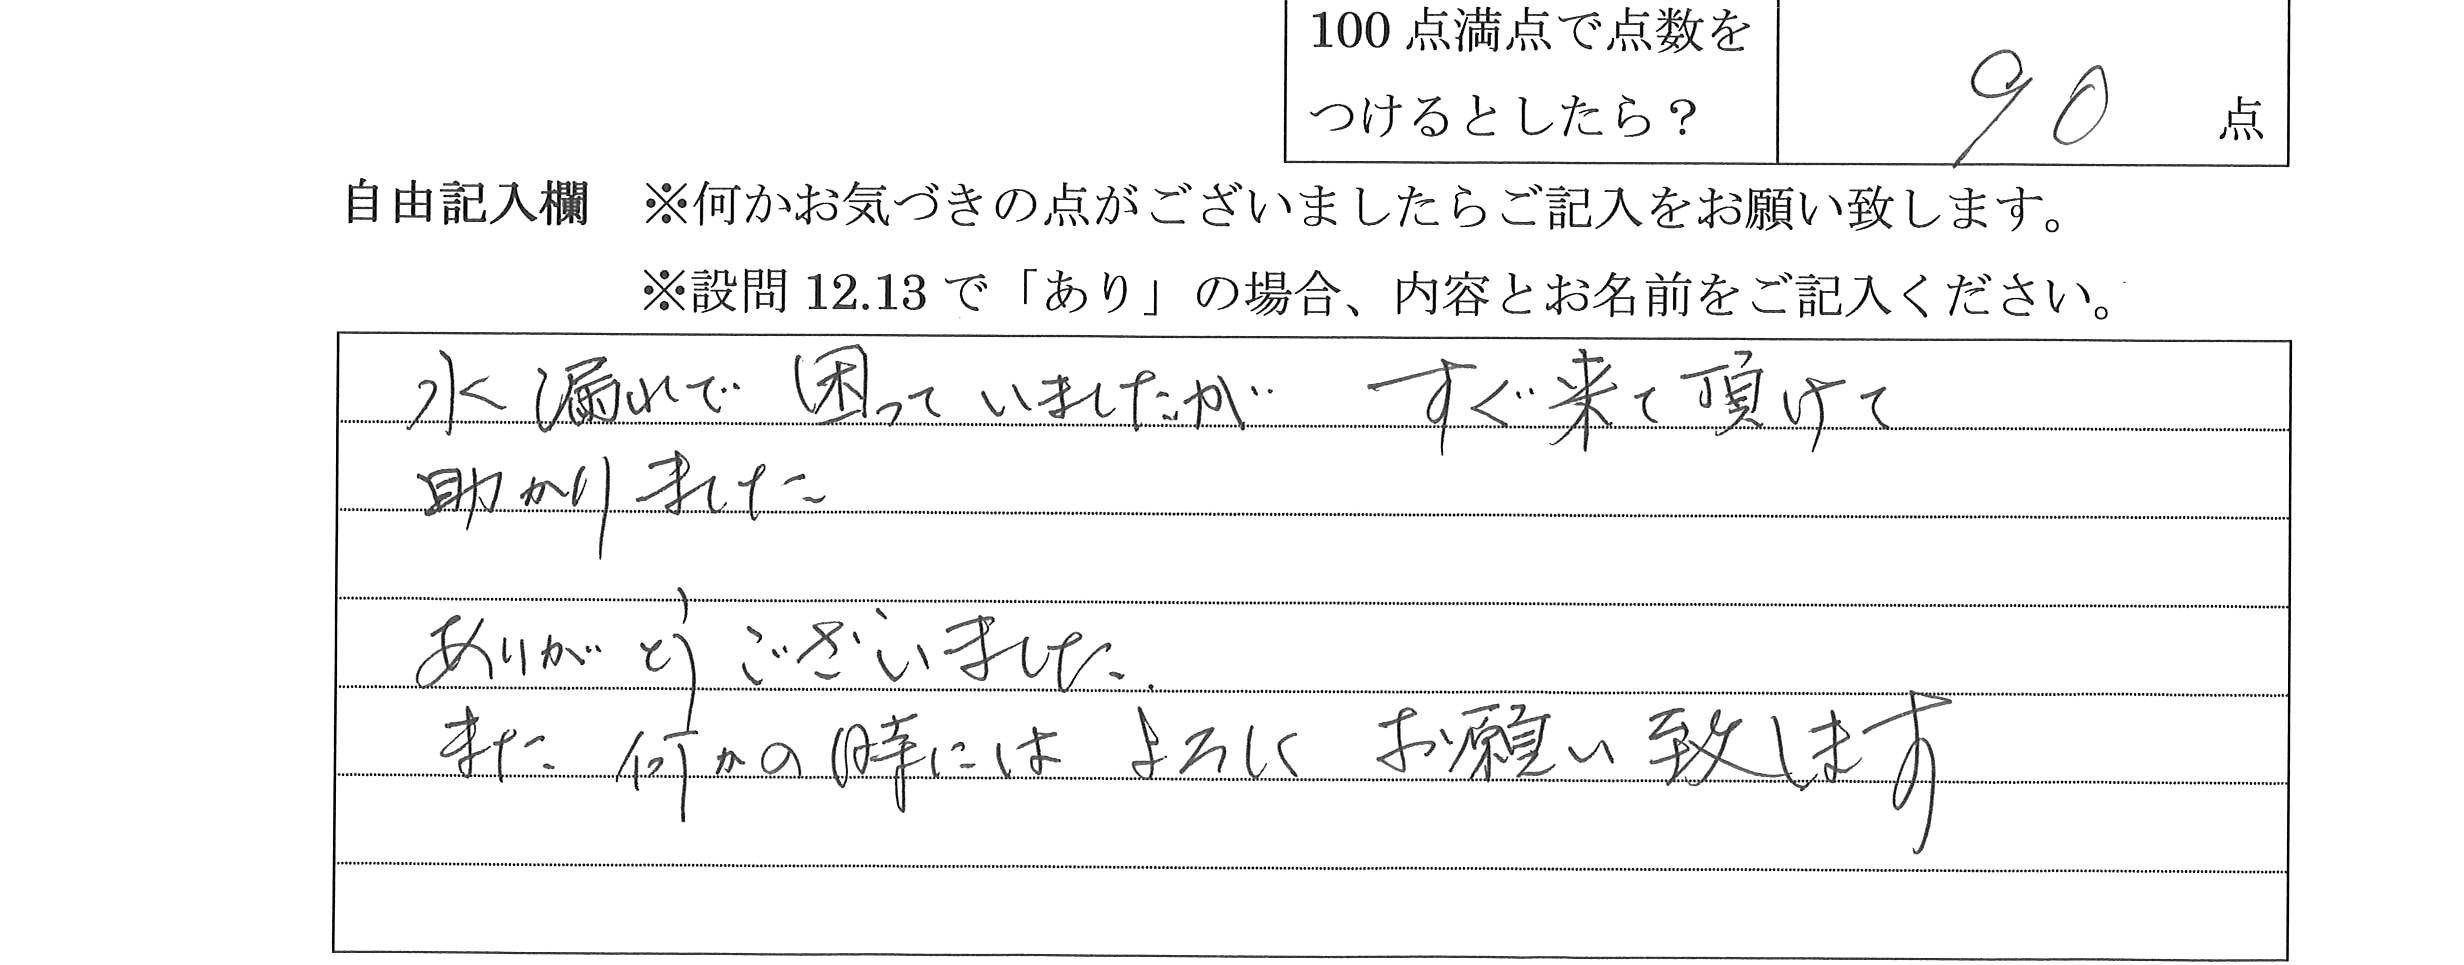 100点満点で点数を
つけるとしたら？
90 点
自由記入欄 ※何かお気づきの点がございましたらご記入をお願い致します。
※設問12.13で「あり」の場合、内容とお名前をご記入ください。
水漏れで 困っていましたが すぐ来て頂けて
助かりました
ありがとうございました.
また 何かの時には よろしく お願い致します